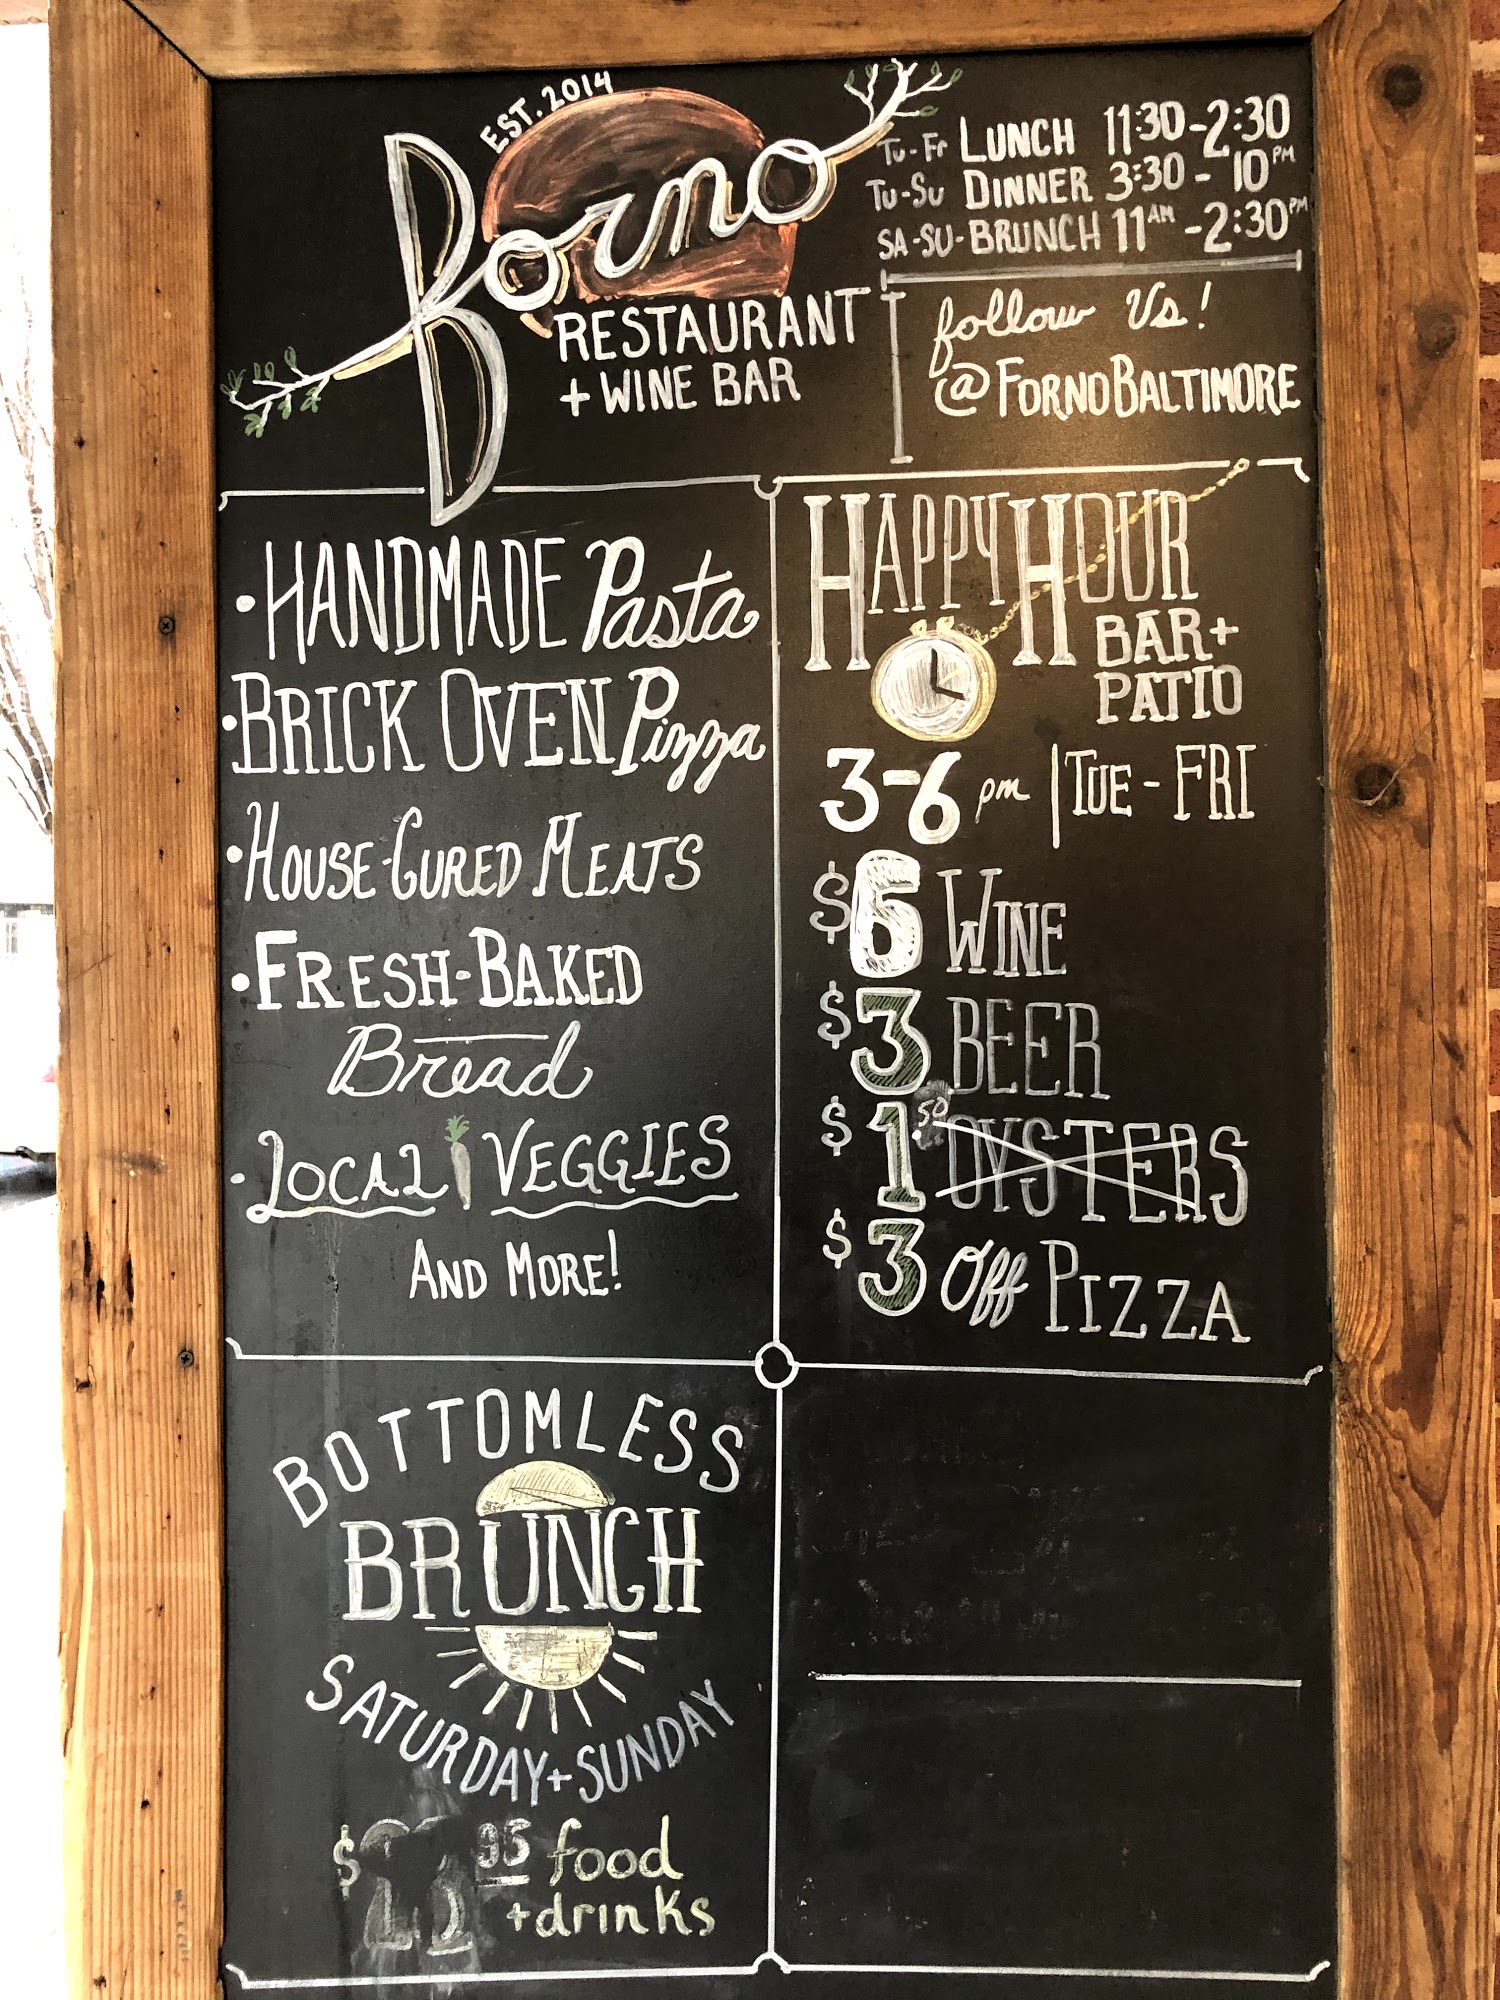 EST. 2014
Borno
RESTAURANT
+ WINE BAR
Tu-Fr LUNCH 11:30-2:30
Tu-Su DINNER 3:30-10PM
SA-SU-BRUNCH 11AM-2:30PM
follow Us!
@FORNOBALTIMORE
•HANDMADE Pasta
•BRICK OVEN Pizza
•HOUSE-CURED MEATS
•FRESH-BAKED
Bread
•LOCAL VEGGIES
AND MORE!
HAPPY HOUR
BAR+
PATIO
3-6 pm | TUE-FRI
$6 WINE
$3 BEER
$1.50 OYSTERS
$3 Off PIZZA
BOTTOMLESS
BRUNCH
SATURDAY+SUNDAY
$ 95 food
+drinks